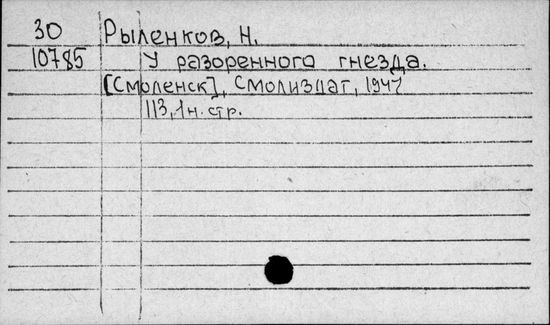 30 Рыленков, Н.
10785 У разоренного гнезда.
[Смоленск], Смолиздат, 1947
113, 1 н. стр.